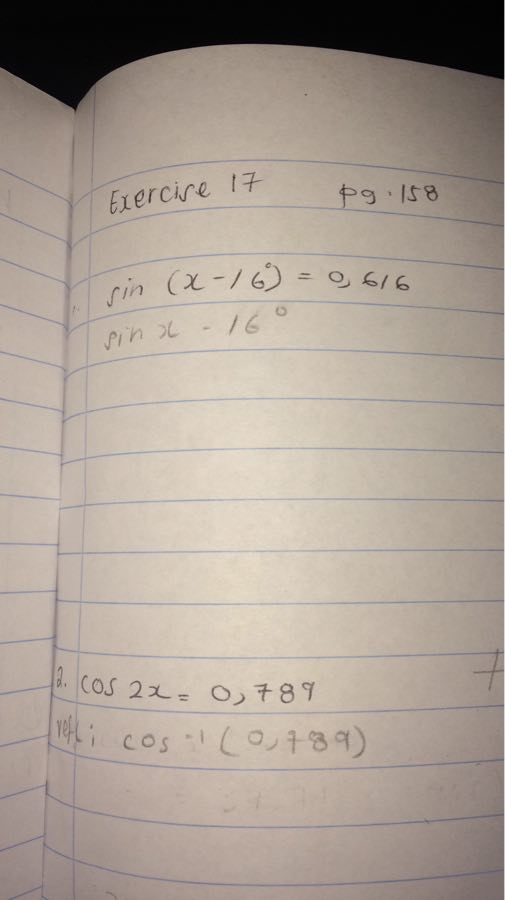 Exercise 17 pg.158
1. sin (x - 16°) = 0,616
sin x - 16°
2. cos 2x = 0,789
ref∠; cos⁻¹ (0,789)